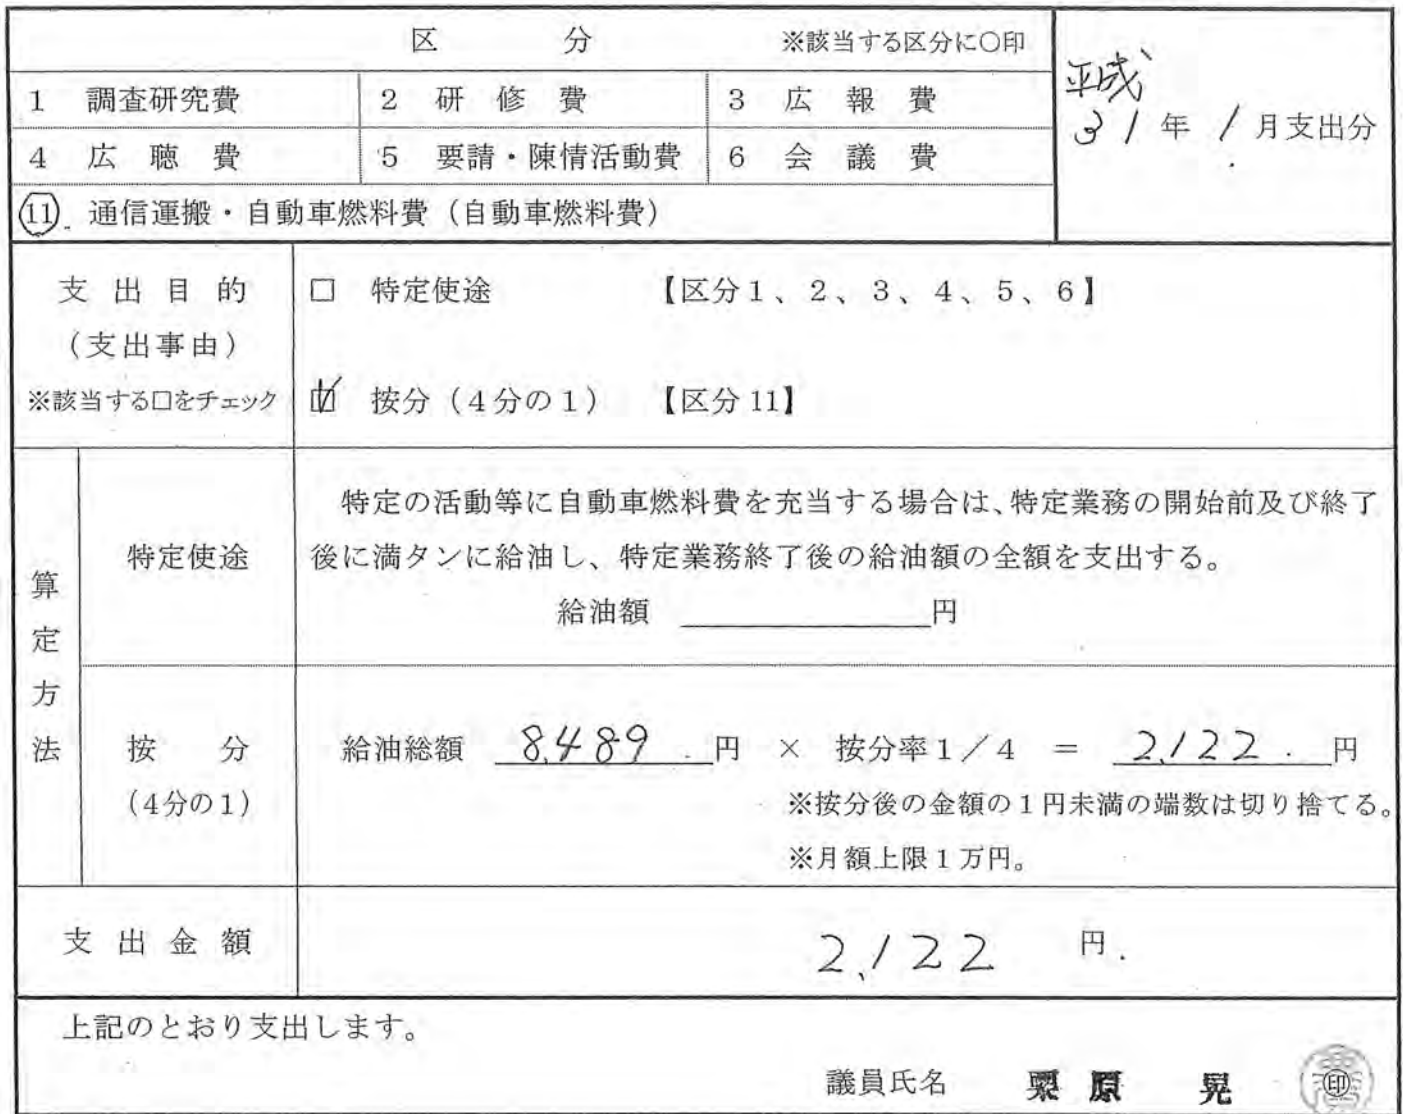 区 分 ※該当する区分に○印
平成
31年 1月支出分
1 調査研究費 2 研修費 3 広報費
4 広聴費 5 要請・陳情活動費 6 会議費
11 通信運搬・自動車燃料費（自動車燃料費）
支出目的
（支出事由）
※該当する口をチェック
□ 特定使途 【区分1、2、3、4、5、6】
☑ 按分（4分の1） 【区分11】
算定方法
特定使途
特定の活動等に自動車燃料費を充当する場合は、特定業務の開始前及び終了
後に満タンに給油し、特定業務終了後の給油額の全額を支出する。
給油額 ＿＿＿＿円
按分
（4分の1）
給油総額 8,489 円 × 按分率1／4 ＝ 2,122 円
※按分後の金額の1円未満の端数は切り捨てる。
※月額上限1万円。
支出金額 2,122 円
上記のとおり支出します。
議員氏名 栗原 晃 印